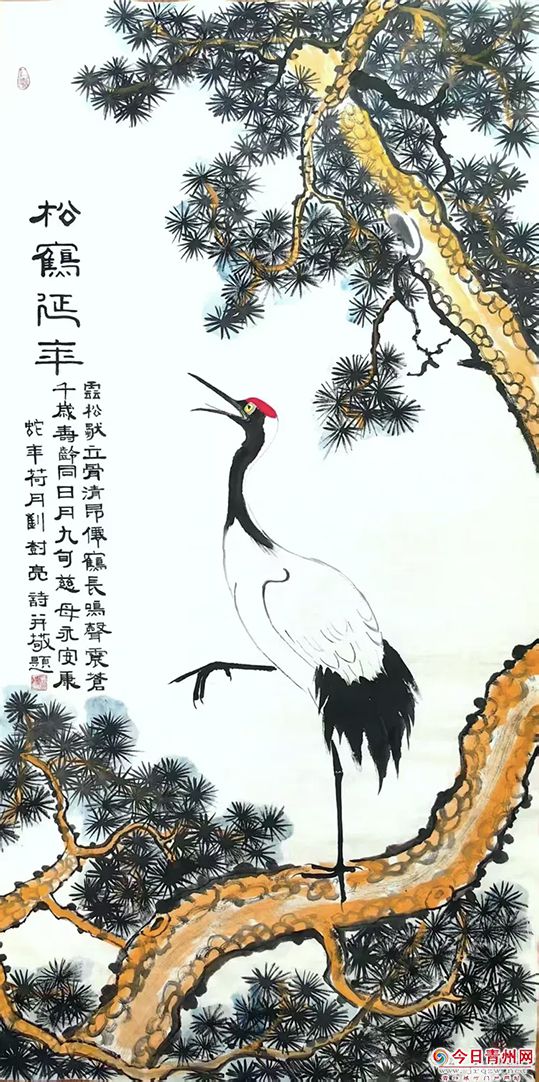 松鶴延年
靈松聳立骨清昂僊鶴長鳴聲震蒼
千歲壽齡同日月九旬慈母永安康
蛇年荷月劉封亮詩并敬題
今日青州网
www.jrqzw.net